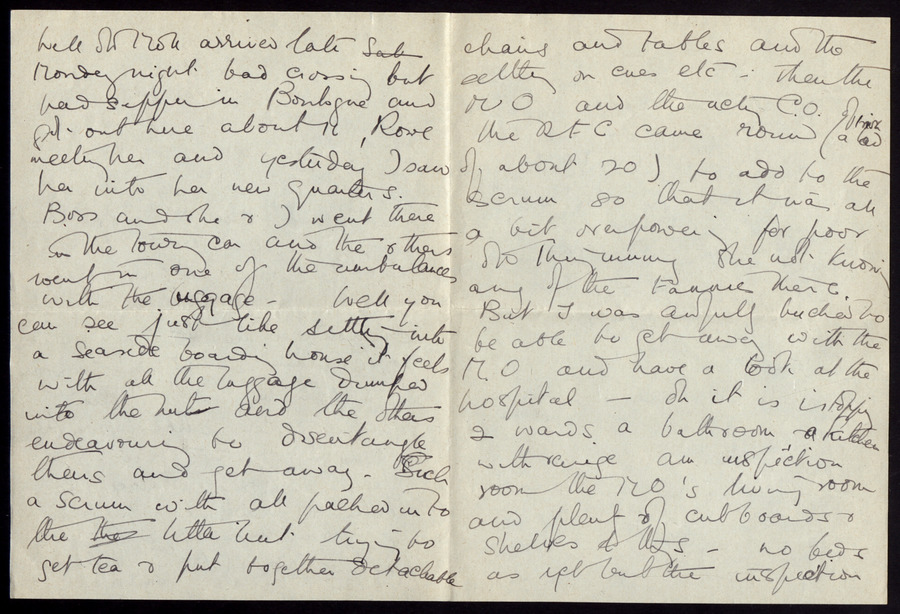 Well Sto Moll arrived late Sat
Monday night bad crossing but
had supper in Boulogne and
got out here about 11, Rowe
meeting her and yesterday I saw
her into her new quarters.
Boss and she & I went there
in the Towny car and the others
went in one of the ambulances
with the luggage - Well you
can see just like settling into
a seaside boarding house it feels
with all the luggage dumped
into the hut and the others
endeavouring to disentangle
theirs and get away - Such
a scrum with all packed into
the the little hut trying to
get tea & put together detachable
chairs and tables and the
settling on cues etc - then the
M O and the acting C.O.
the R F C came round (a lad
of about 20) to add to the
scrum so that it was all
a bit overpowering for poor
Sto Thingummy she not knowing
any of the Fannies there.
But I was awfully bucked to
be able to get away with the
M.O. and have a look at the
hospital - oh it is is topping
2 wards a bathroom a kitchen
with range an inspection
room the MO's living room
and plenty of cupboards &
shelves & thgs - no beds
as yet but the inspection